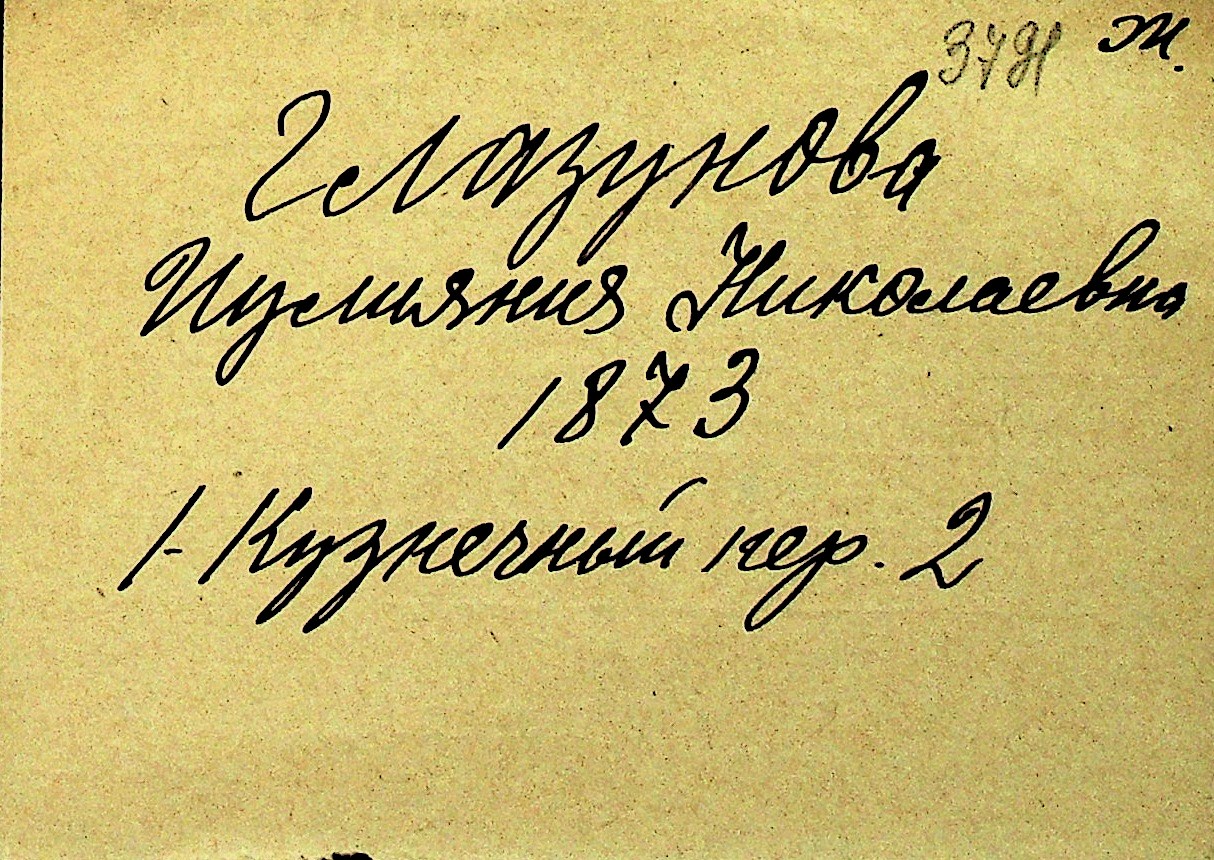 ж.
Глазунова
Иулияния Николаевна
1873
1-Кузнечный пер. 2